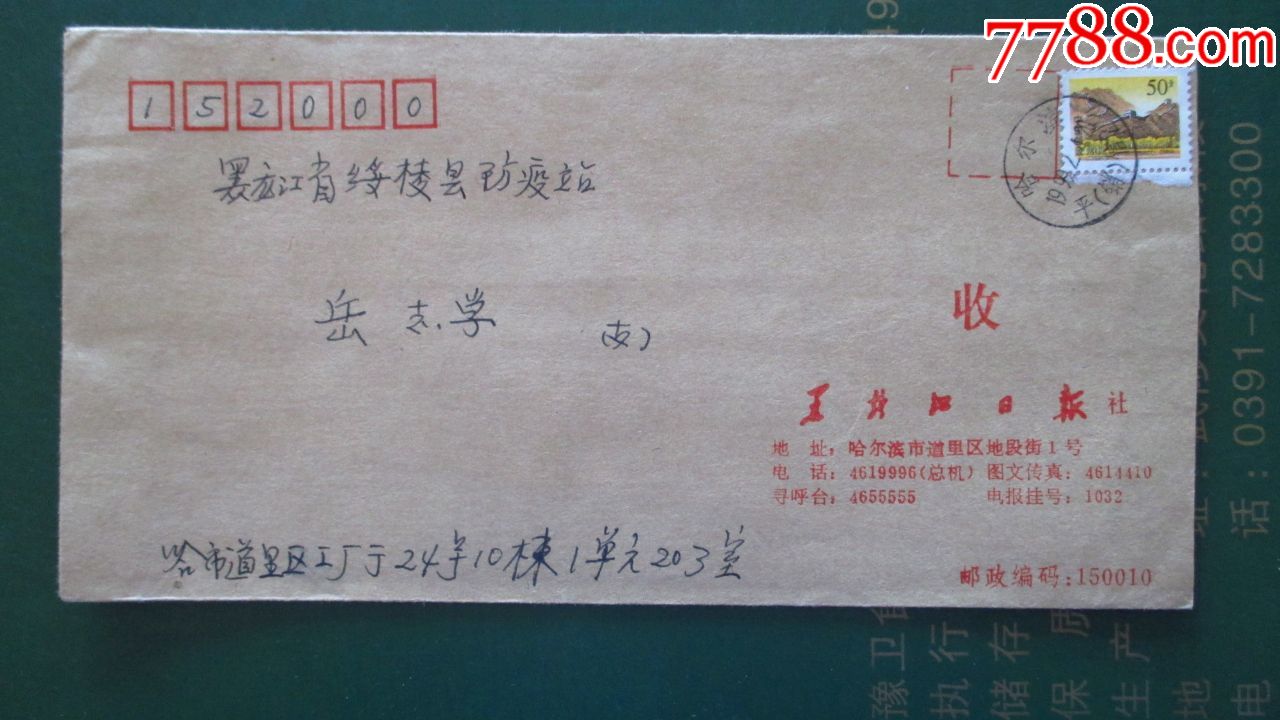 7788.com
50分
152000
黑龙江省绥棱县防疫站
哈尔滨
岳志学
收
黑龙江日报社
地 址：哈尔滨市道里区地段街1号
电 话：4619996(总机) 图文传真：4614410
寻呼台：4655555 电报挂号：1032
哈市道里区工厂于24号10栋1单元203室
邮政编码：150010
话：0391-7283300
豫卫食
执行
储存
保质
生产
地址：
电